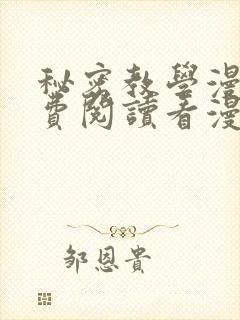 秘密教學漫
費閱讀看漫
邹恩貴